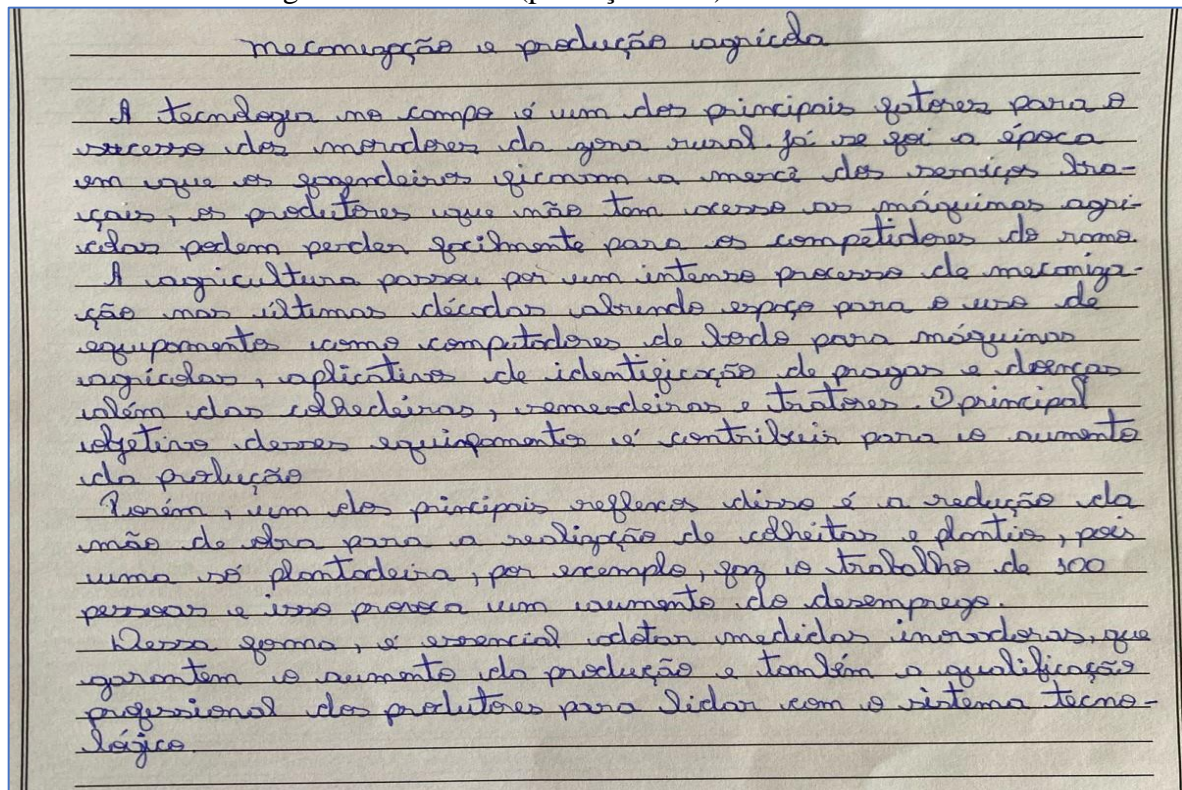 mecanização e produção agrícola
A tecnologia no campo é um dos principais fatores para o
sucesso dos moradores da zona rural. Já se foi a época
em que os fazendeiros ficavam a mercê dos serviços bra-
çais, os produtores que não tem acesso as máquinas agrí-
colas podem perder facilmente para os competidores do ramo.
A agricultura passou por um intenso processo de mecaniza-
ção nas últimas décadas abrindo espaço para o uso de
equipamentos como computadores de bordo para máquinas
agrícolas, aplicativos de identificação de pragas e doenças
além das colhedeiras, semeadeiras e tratores. O principal
objetivo desses equipamentos é contribuir para o aumento
da produção
Porém, um dos principais reflexos disso é a redução da
mão de obra para a realização de colheitas e plantio, pois
uma só plantadeira, por exemplo, faz o trabalho de 100
pessoas e isso provoca um aumento do desemprego.
Dessa forma, é essencial adotar medidas inovadoras, que
garantem o aumento da produção e também a qualificação
profissional dos produtores para lidar com o sistema tecno-
lógico.